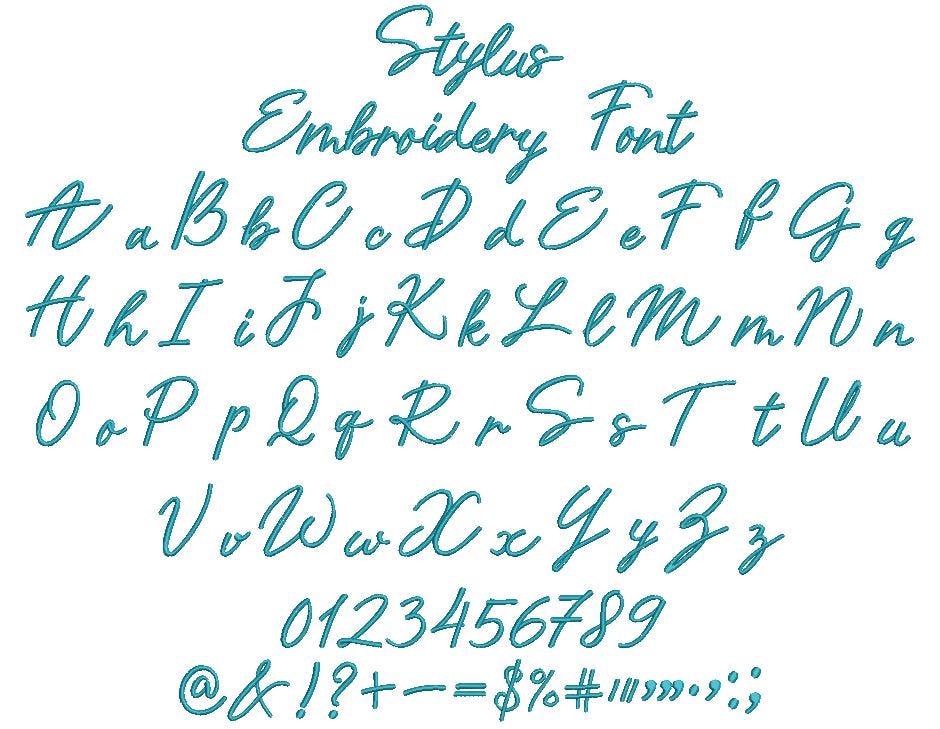 Stylus
Embroidery Font
A a B b C c D d E e F f G g
H h I i J j K k L l M m N n
O o P p Q q R r S s T t U u
V v W w X x Y y Z z
0123456789
@&!?+-=$%#'"",""·,:;